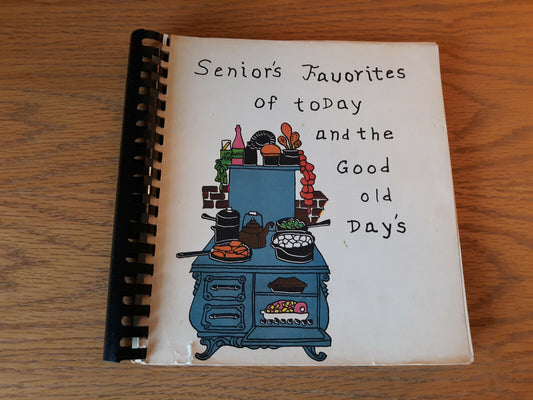 Senior's Favorites
of toDay
and the
Good
old
Day's